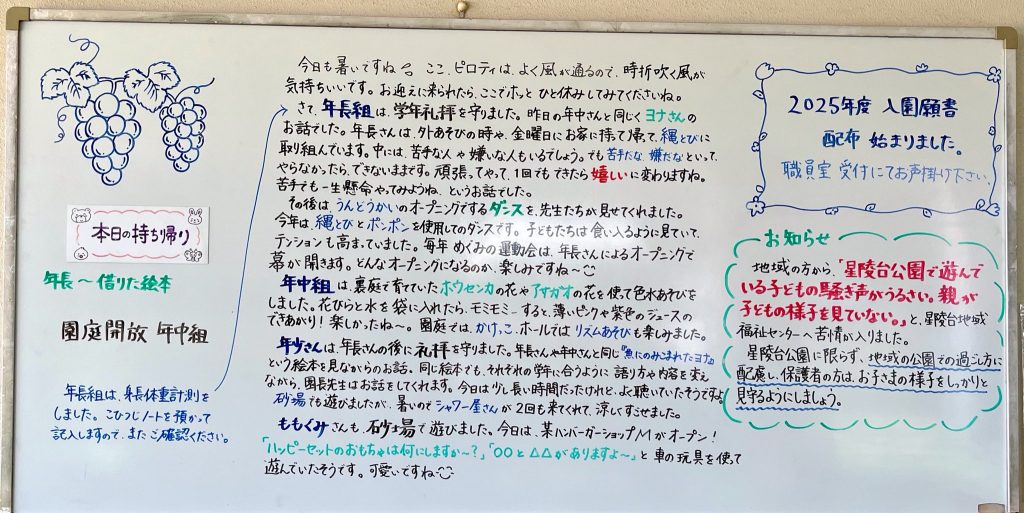 本日の持ち帰り
年長〜借りた絵本
園庭開放 年中組
年長組は、身長体重計測を
しました。こひつじノートを預かって
記入しますので、またご確認ください。
今日も暑いですね。ここ、ピロティは、よく風が通るので、時折吹く風が
気持ちいいです。お迎えに来られたら、ここでホッとひと休みしてみてくださいね。
さて、年長組は、学年礼拝を守りました。昨日の年中さんと同じくヨナさんの
お話でした。年長さんは、外あそびの時や、金曜日にお家に持って帰て、縄とびに
取り組んでいます。中には、苦手な人や嫌いな人もいるでしょう。でも苦手だな、嫌だなといって、
やらなかったら、できないままです。頑張ってやって、1回でもできたら嬉しいに変わりますね。
苦手でも一生懸命やってみようね、というお話でした。
その後は、うんとうかいのオープニングでするダンスを、先生たちが見せてくれました。
今年は、縄とびとポンポンを使用してのダンスです。子どもたちは食い入るように見ていて、
テンションも高まっていました。毎年めぐみの運動会は、年長さんによるオープニングで
幕が開きます。どんなオープニングになるのか、楽しみですね〜
年中組は、裏庭で育てていたホウセンカの花やアサガオの花を使って色水あそびを
しました。花びらと水を袋に入れたら、モミモミ…すると、薄いピンクや紫色のジュースの
できあがり!楽しかったね〜。園庭では、かけっこ、ホールではリズムあそびも楽しみました。
年少さんは、年長さんの後に礼拝を守りました。年長さんや年中さんと同じ『魚にのみこまれたヨナ』
という絵本を見ながらのお話。同じ絵本でも、それぞれの学年に合うように語り方や内容を変え
ながら、園長先生はお話をしてくれます。今日は少し長い時間だったけれど、よく聴いていたそうですよ。
砂場でも遊びましたが、暑いのでシャワー屋さんが2回も来てくれて、涼しくすごせました。
ももぐみさんも、砂場で遊びました。今日は、某ハンバーガーショップMがオープン!
「ハッピーセットのおもちゃは何にしますか〜?」「〇〇と△△がありますよ〜」と車の玩具を使って
遊んでいたそうです。可愛いですね
2025年度 入園願書
配布 始まりました。
職員室 受付にてお声掛け下さい。
お知らせ
地域の方から、「星陵台公園で遊んで
いる子どもの騒ぎ声がうるさい。親が
子どもの様子を見ていない。」と、星陵台地域
福祉センターへ苦情が入りました。
星陵台公園に限らず、地域の公園での過ごし方に
配慮し、保護者の方は、お子さまの様子をしっかりと
見守るようにしましょう。